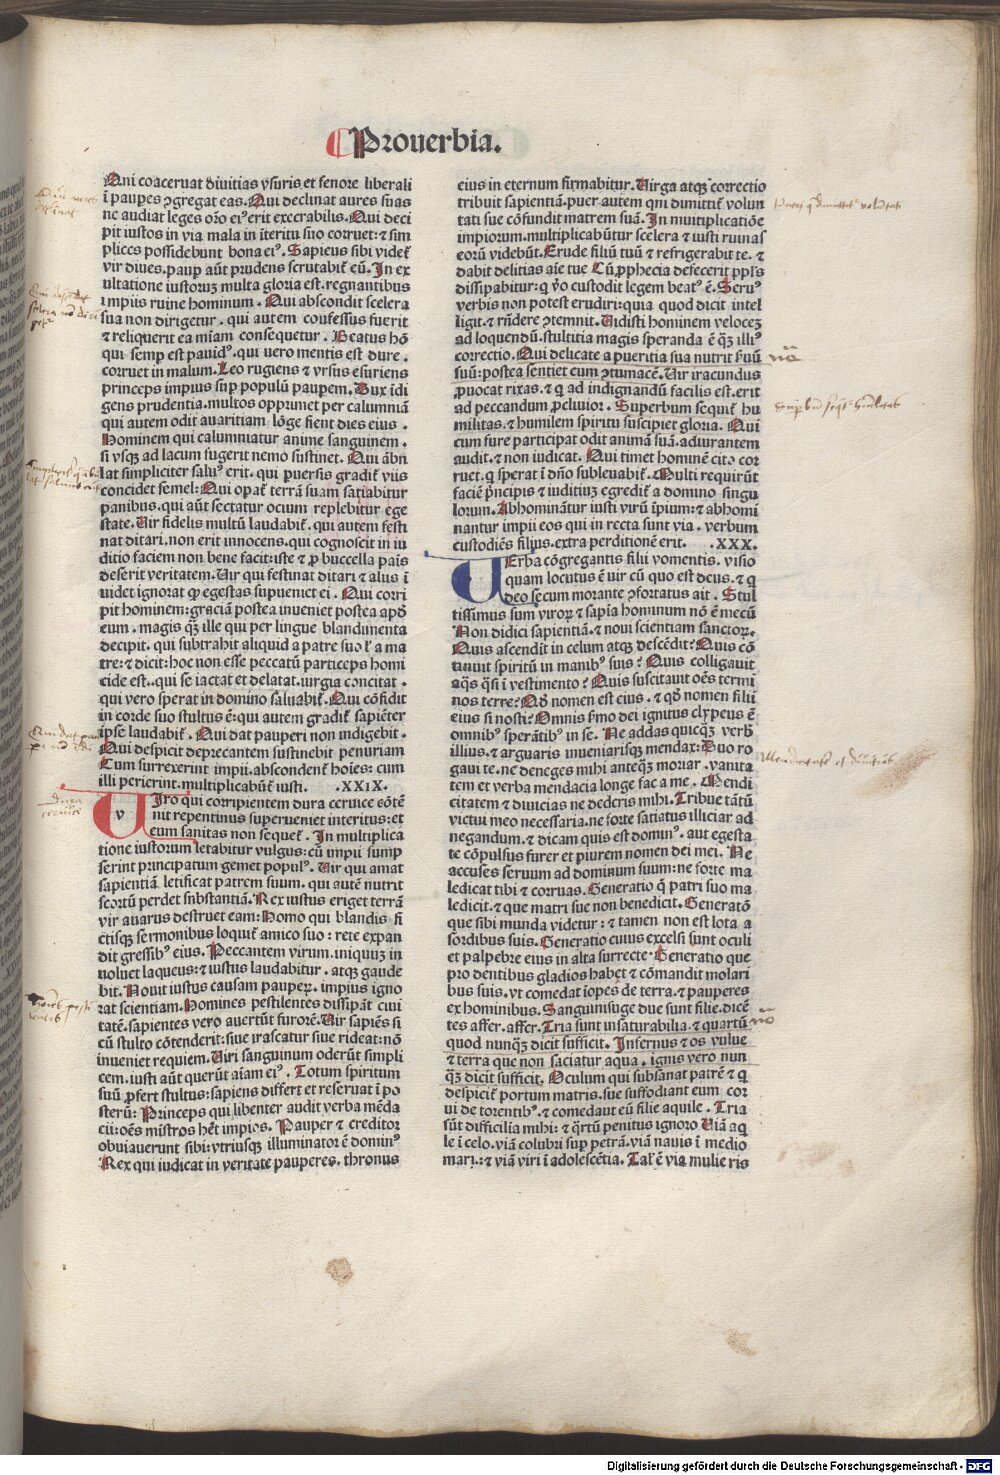 Prouerbia.
Qui coaceruat diuitias vsuris et fenore liberali
ī paupeꝫ ꝯgregat eas. Qui declinat aures suas
ne audiat legeꝫ orō ei⁹ erit execrabilis. Qui deci
pit iustos in via mala in īteritu suo corruet: ⁊ sim
plices possidebunt bona ei⁹. Sapiens sibi videt᷑
vir diues. paup̄ aūt prudens scrutabit᷑ eū. In ex
ultatione iustorum multa gloria est. regnantibus
impiis ruine hominum. Qui abscondit scelera
sua non dirigetur. qui autem confessus fuerit
⁊ reliquerit ea mīam consequetur. Beatus hō
qui semp̄ est pauid⁹. qui uero mentis est dure.
corruet in malum. Leo rugiens ⁊ vrsus esuriens
princeps impius sup̄ populū paupem. Dux īdi
gens prudentia. multos opprimet per calumniā
qui autem odit auaritiam lōge fient dies eius.
Hominem qui calumniatur anime sanguinem.
si vsqꝫ ad lacum fugerit nemo sustinet. Qui ābu
lat simpliciter salu⁹ erit. qui ꝑuersis gradit᷑ viis
concidet semel: Qui opat᷑ terrā suam satiabitur
panibus. qui aūt sectatur ocium replebitur ege
state. Uir fidelis multū laudabit᷑. qui autem festi
nat ditari. non erit innocens. qui cognoscit in iu
ditio faciem non bene facit: iste ⁊ ꝓ buccella pais
deserit veritatem. Uir qui festinat ditari ⁊ aliis ī
uidet ignorat ꝙ egestas supueniet ei. Qui corri
pit hominem: graciam postea inueniet postea apd̄
eum. magis qꝫ ille qui per lingue blandimenta
decipit. qui subtrahit aliquid a patre suo ł a ma
tre: ⁊ dicit: hoc non esse peccatū particeps homi
cide est.. qui se iactat et delatat. iurgia concitat.
qui vero sperat in domino saluabit᷑. Qui cōfidit
in corde suo stultus ē: qui autem gradit᷑ sapiēter
ipse laudabit᷑. Qui dat pauperi non indigebit.
Qui despicit deprecantem sustinebit penuriam
Cum surrexerint impii. abscondent᷑ hoīes: cum
illi perierint. multiplicabūt᷑ iusti. .XXIX.
UIro qui corripientem dura ceruice cōtē
nit repentinus superueniet interitus: et
eum sanitas non sequet᷑. In multiplica
tione iustorum letabitur vulgus: cū impii sump
serint principatum gemet popul⁹. Uir qui amat
sapientiā letificat patrem suum. qui autē nutrit
scortū perdet substantiā. Rex iustus eriget terrā
vir auarus destruet eam: Homo qui blandis fi
ctisqꝫ sermonibus loquit᷑ amico suo: rete expan
dit gressib⁹ eius. Peccantem virum. iniquum in
uoluet laqueus: ⁊ iustus laudabitur. atqꝫ gaude
bit. Nouit iustus causam pauperꝝ. impius igno
rat scientiam. Homines pestilentes dissipāt ciui
tatē. sapientes vero auertūt furorē. Uir sapiēs si
cū stulto cōtenderit: siue irascatur siue rideat: nō
inueniet requiem. Uiri sanguinum oderūt simpli
cem. iusti aūt querūt aīam ei⁹. Totum spiritum
suū ꝓfert stultus: sapiens differt et reseruat ī po
sterū: Princeps qui libenter audit verba mēda
cii: oēs mistros hēt impios. Pauper ⁊ creditor
obuiauerunt sibi: vtriusqꝫ illuminator ē domin⁹
Rex qui iudicat in veritate pauperes. thronus
eius in eternum firmabitur. Uirga atqꝫ correctio
tribuit sapientiā. puer autem qui dimittit᷑ volun
tati sue cōfundit matrem suā. In multiplicatiōe
impiorum. multiplicabūtur scelera ⁊ iusti ruinas
eorū videbūt. Erude filiū tuū ⁊ refrigerabit te. ⁊
dabit delitias aīe tue Cū ꝓphecia defecerit ppl's
dissipabitur: q̄ v̄o custodit legem beat⁹ ē. Seru⁹
verbis non potest erudiri: quia quod dicit intel
ligit. ⁊ rn̄dere ꝯtemnit. Uidisti hominem velocem
ad loquendū. stultitia magis speranda ē qꝫ illi⁹
correctio. Qui delicate a pueritia sua nutrit ẜuū
suū: postea sentiet eum ꝯtumacē. Uir iracundus
ꝓuocat rixas. ⁊ q̄ ad indignandū facilis est. erit
ad peccandum ꝓcliuior. Superbum sequit᷑ hu
militas. ⁊ humilem spiritu suscipiet gloria. Qui
cum fure participat odit animā suā. adiurantem
audit. ⁊ non iudicat. Qui timet hominē cito cor
ruet. q̄ sperat ī dn̄o subleuabit᷑. Multi requirūt
faciē pͥncipis ⁊ iuditiuꝫ egredit᷑ a domino singu
lorum. Abhominātur iusti virū īpium: ⁊ abhomi
nantur impii eos qui in recta sunt via. verbum
custodiēs filius. extra perditionē erit. .XXX.
UErba cōgregantis filii vomentis. visio
quam locutus ē uir cū quo est deus. ⁊ q̄
deo secum morante ꝯfortatus ait. Stul
tissimus sum virorꝝ ⁊ sapīa hominum nō ē mecū
Non didici sapientiā. ⁊ noui scientiam sanctorꝝ.
Quis ascendit in celum atqꝫ descēdit? Quis cō
tinuit spiritū in manib⁹ suis? Quis colligauit
aq̄s q̄si ī vestimento? Quis suscitauit oēs termi
nos terre? Qd̄ nomen est eius. ⁊ qd̄ nomen filii
eius si nosti? Omnis ẜmo dei ignitus clypeus ē
omnib⁹ sperātib⁹ in se. Ne addas quicqꝫ verb̄
illius. ⁊ arguaris inueniarisqꝫ mendax: Duo ro
gaui te. ne deneges mihi anteqꝫ moriar. vanita
tem et verba mendacia longe fac a me. Mendi
citatem ⁊ diuicias ne dederis mihi. Tribue tātū
victui meo necessaria. ne forte satiatus illiciar ad
negandum. ⁊ dicam quis est domin⁹. aut egesta
te cōpulsus furer et piurem nomen dei mei. Ne
accuses seruum ad dominum suum: ne forte ma
ledicat tibi ⁊ corruas. Generatio q̄ patri suo ma
ledicit. ⁊ que matri sue non benedicit. Generatō
que sibi munda videtur: ⁊ tamen non est lota a
sordibus suis. Generatio cuius excelsi sunt oculi
et palpebre eius in alta surrecte: Generatio que
pro dentibus gladios habet ⁊ cōmandit molari
bus suis. vt comedat īopes de terra. ⁊ pauperes
ex hominibus. Sanguinsuge due sunt filie. dicē
tes affer. affer. Tria sunt insaturabilia. ⁊ quartū
quod nunqꝫ dicit sufficit. Infernus ⁊ os vulue
⁊ terra que non saciatur aqua. ignis vero nun
qꝫ dicit sufficit. Oculum qui subsānat patrē ⁊ q̄
despicit᷑ portum matris. sue suffodiant eum cor
ui de torentib⁹. ⁊ comedant eū filie aquile. Tria
sūt difficilia mihi: ⁊ q̄rtū penitus ignoro Uiā aq̄
le ī celo. viā colubri sup̄ petrā. viā nauis ī medio
mari.: ⁊ viā viri ī adolescētia. Tal' ē via mulieris
Digitalisierung gefördert durch die Deutsche Forschungsgemeinschaft - DFG